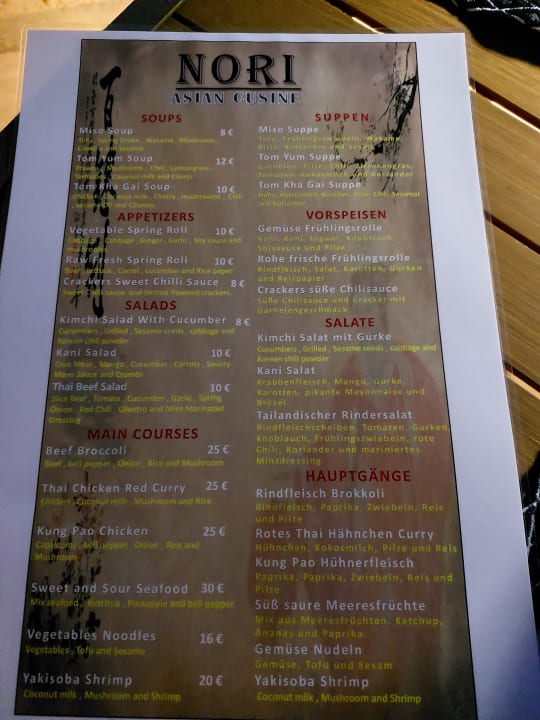 NORI
ASIAN CUSINE
SOUPS
Miso Soup 8 €
Tofu, Spring Onion, Wakame, Mushroom,
Cilantro and Sesame
Tom Yum Soup 12 €
Prawns, Mushroom, Chili, Lemongrass,
Tomatoes, Coconut milk and Cilantro
Tom Kha Gai Soup 10 €
Chicken, Coconut milk, Cherry, mushrooms, Chili
, Sesame Oil and Cilantro
APPETIZERS
Vegetable Spring Roll 10 €
Cabbage, Ginger, Garlic, Soy sauce and
mushrooms
Raw Fresh Spring Roll 10 €
Beef, Lettuce, Carrot, cucumber and Rice paper
Crackers Sweet Chilli Sauce 8 €
Sweet Chili sauce and Shrimp flavored crackers
SALADS
Kimchi Salad With Cucumber 8 €
Cucumbers, Grilled, Sesame seeds, cabbage and
Korean chili powder
Kani Salad 10 €
Crab Meat, Mango, Cucumber, Carrots, Savory
Mayo Sauce and Crumbs
Thai Beef Salad 10 €
Slice Beef, Tomato, Cucumber, Garlic, Spring
Onion, Red Chili, Cilantro and Mint Marinated
Dressing
MAIN COURSES
Beef Broccoli 25 €
Beef, bell pepper, Onion, Rice and Mushroom
Thai Chicken Red Curry 25 €
Chicken, Coconut milk, Mushroom and Rice
Kung Pao Chicken 25 €
Capsicum, bell pepper, Onion, Rice and
Mushroom
Sweet and Sour Seafood 30 €
Mix seafood, Ketchup, Pineapple and bell pepper
Vegetables Noodles 16 €
Vegetables, Tofu and Sesame
Yakisoba Shrimp 20 €
Coconut milk, Mushroom and Shrimp
SUPPEN
Miso Suppe
Tofu, Frühlingszwiebeln, Wakame,
Pilze, Koriander und Sesam
Tom Yum Suppe
Garnelen, Pilze, Chili, Zitronengras,
Tomaten, Kokosmilch und Koriander
Tom Kha Gai Suppe
Huhn, Kokosmilch, Kirschen, Pilze, Chili, Sesamöl
und Koriander
VORSPEISEN
Gemüse Frühlingsrolle
Kohl, Ingwer, Knoblauch,
Sojasauce und Pilze
Rohe frische Frühlingsrolle
Rindfleisch, Salat, Karotten, Gurken
und Reispapier
Crackers süße Chilisauce
Süße Chilisauce und Cracker mit
Garnelengeschmack
SALATE
Kimchi Salat mit Gurke
Cucumbers, Grilled, Sesame seeds, cabbage and
Korean chili powder
Kani Salat
Krabbenfleisch, Mango, Gurke,
Karotten, pikante Mayonnaise und
Brösel
Tailandischer Rindersalat
Rindfleischscheiben, Tomaten, Gurken,
Knoblauch, Frühlingszwiebeln, rote
Chili, Koriander und mariniertes
Minzdressing
HAUPTGÄNGE
Rindfleisch Brokkoli
Rindfleisch, Paprika, Zwiebeln, Reis
und Pilze
Rotes Thai Hähnchen Curry
Hühnchen, Kokosmilch, Pilze und Reis
Kung Pao Hühnerfleisch
Paprika, Paprika, Zwiebeln, Reis und
Pilze
Süß saure Meeresfrüchte
Mix aus Meeresfrüchten, Ketchup,
Ananas und Paprika
Gemüse Nudeln
Gemüse, Tofu und Sesam
Yakisoba Shrimp
Coconut milk, Mushroom and Shrimp